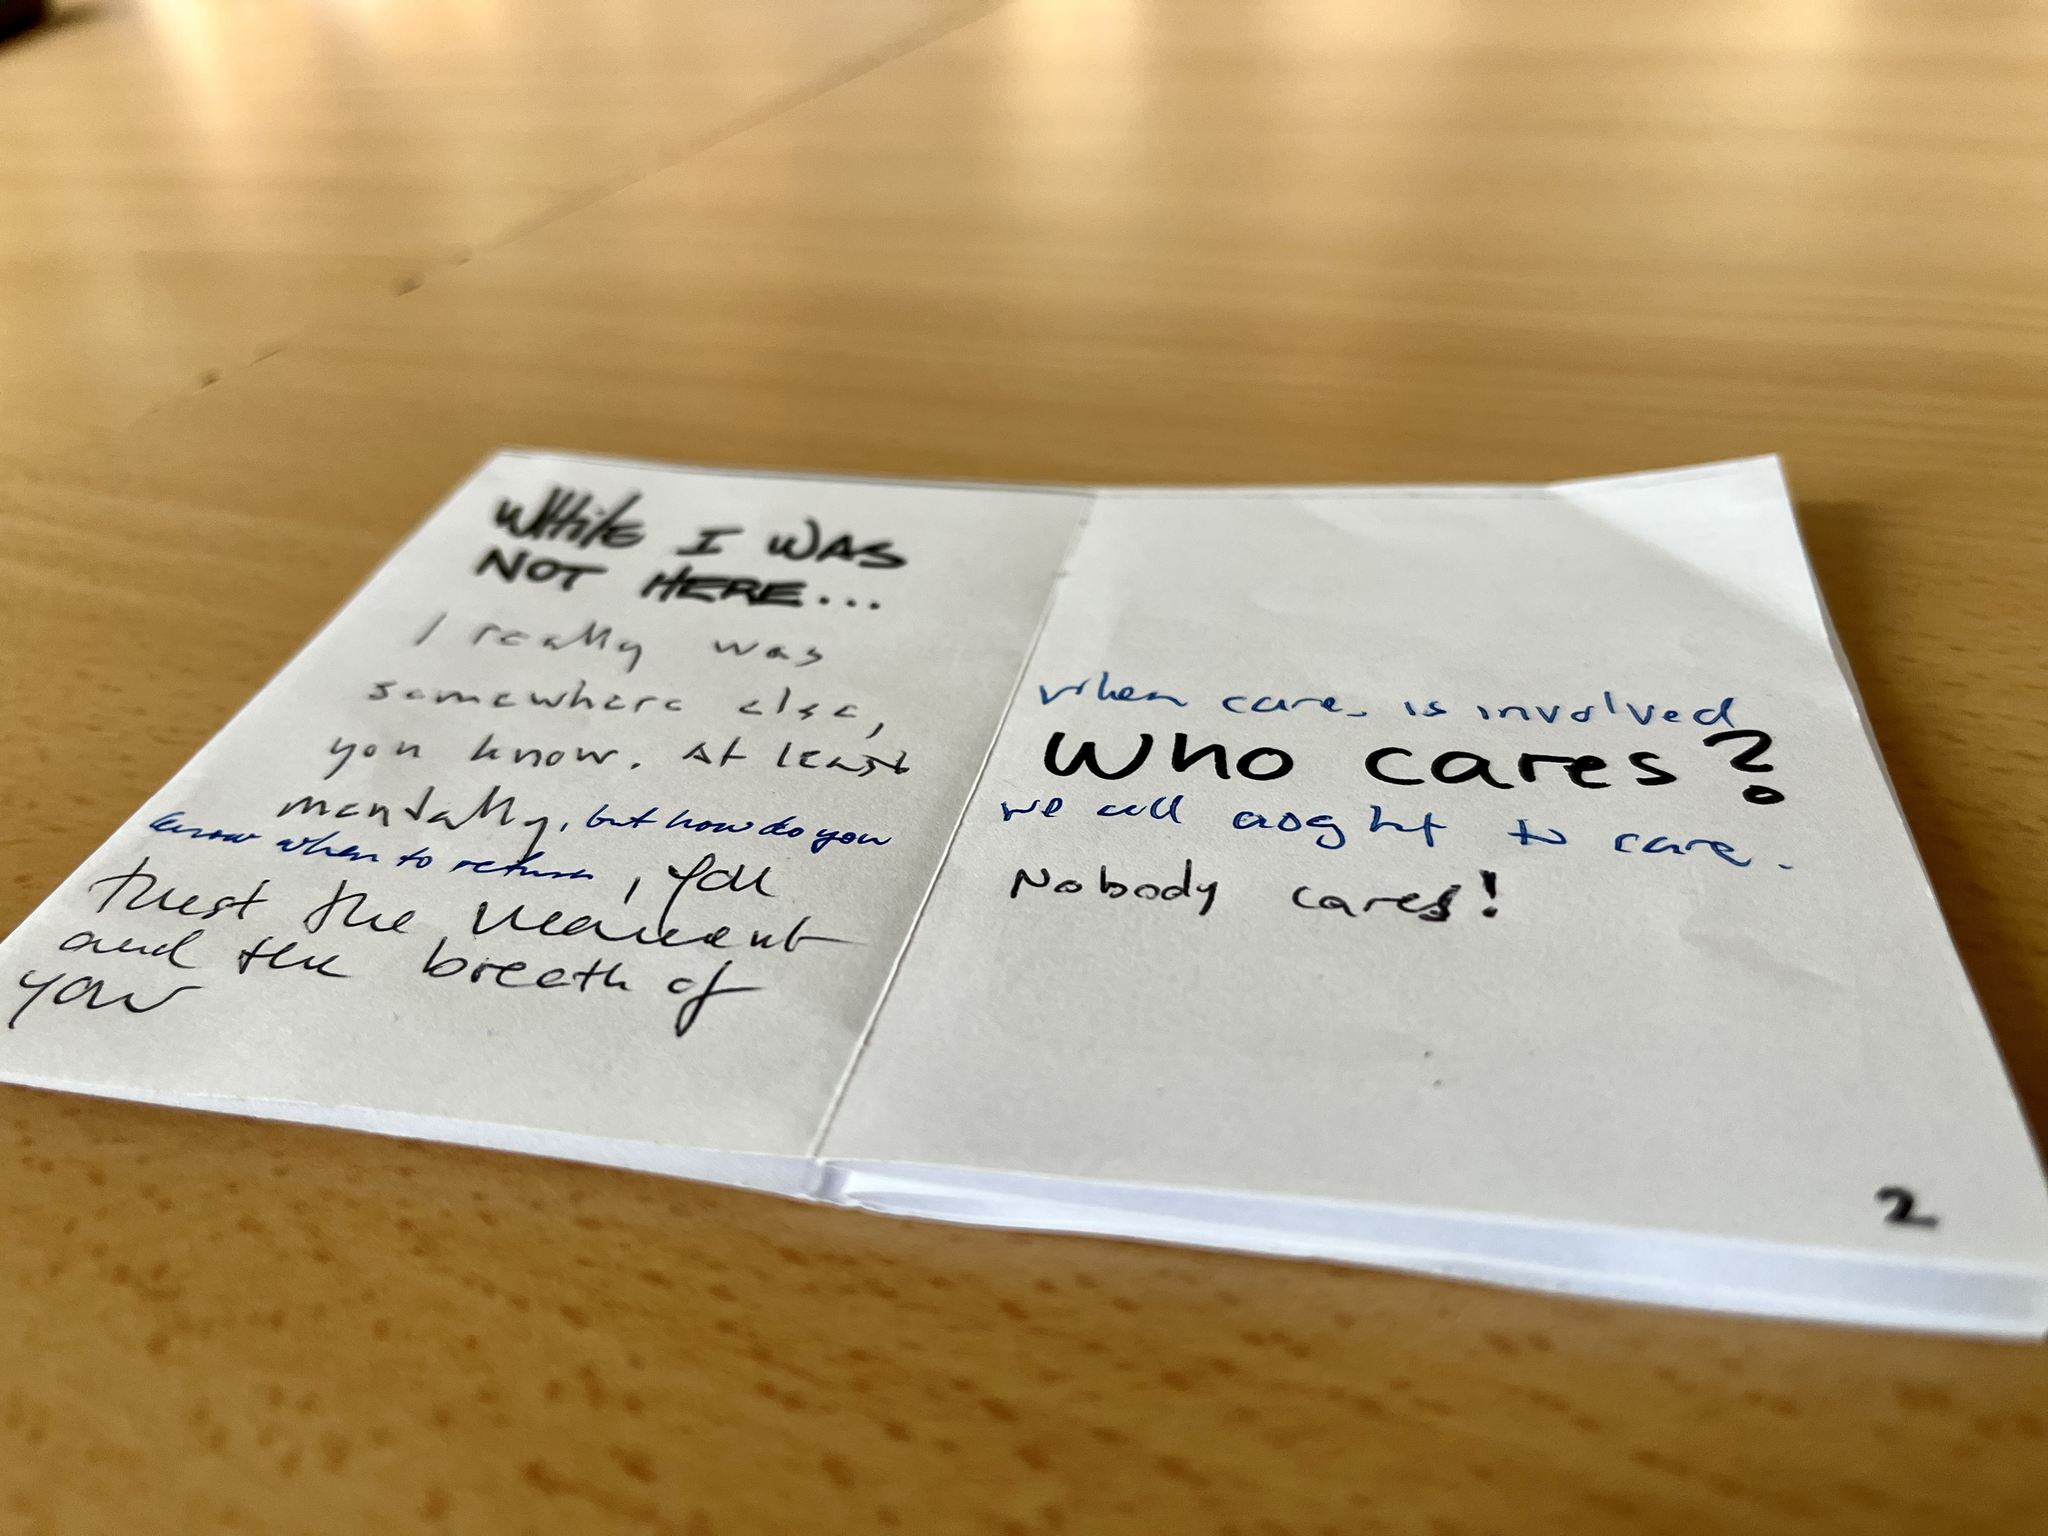 WHILE I WAS
NOT HERE...
I really was
somewhere else,
you know. At least
mentally, but how do you
know when to return, you
trust the moment
and the breath of
you
when care is involved
Who cares?
we all aught to care.
Nobody cares!
2